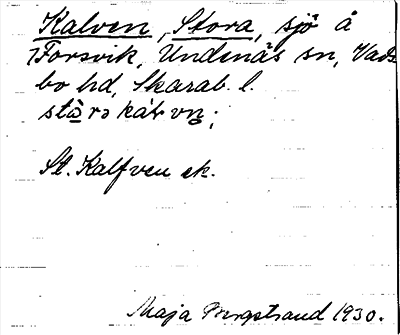 Kalven, Stora, sjö å
Forsvik, Undenäs sn, Vads
bo hd, Skarab. l.
stòrə kátvn;
St. Kalfven ek.
Maja Bergstrand 1930.